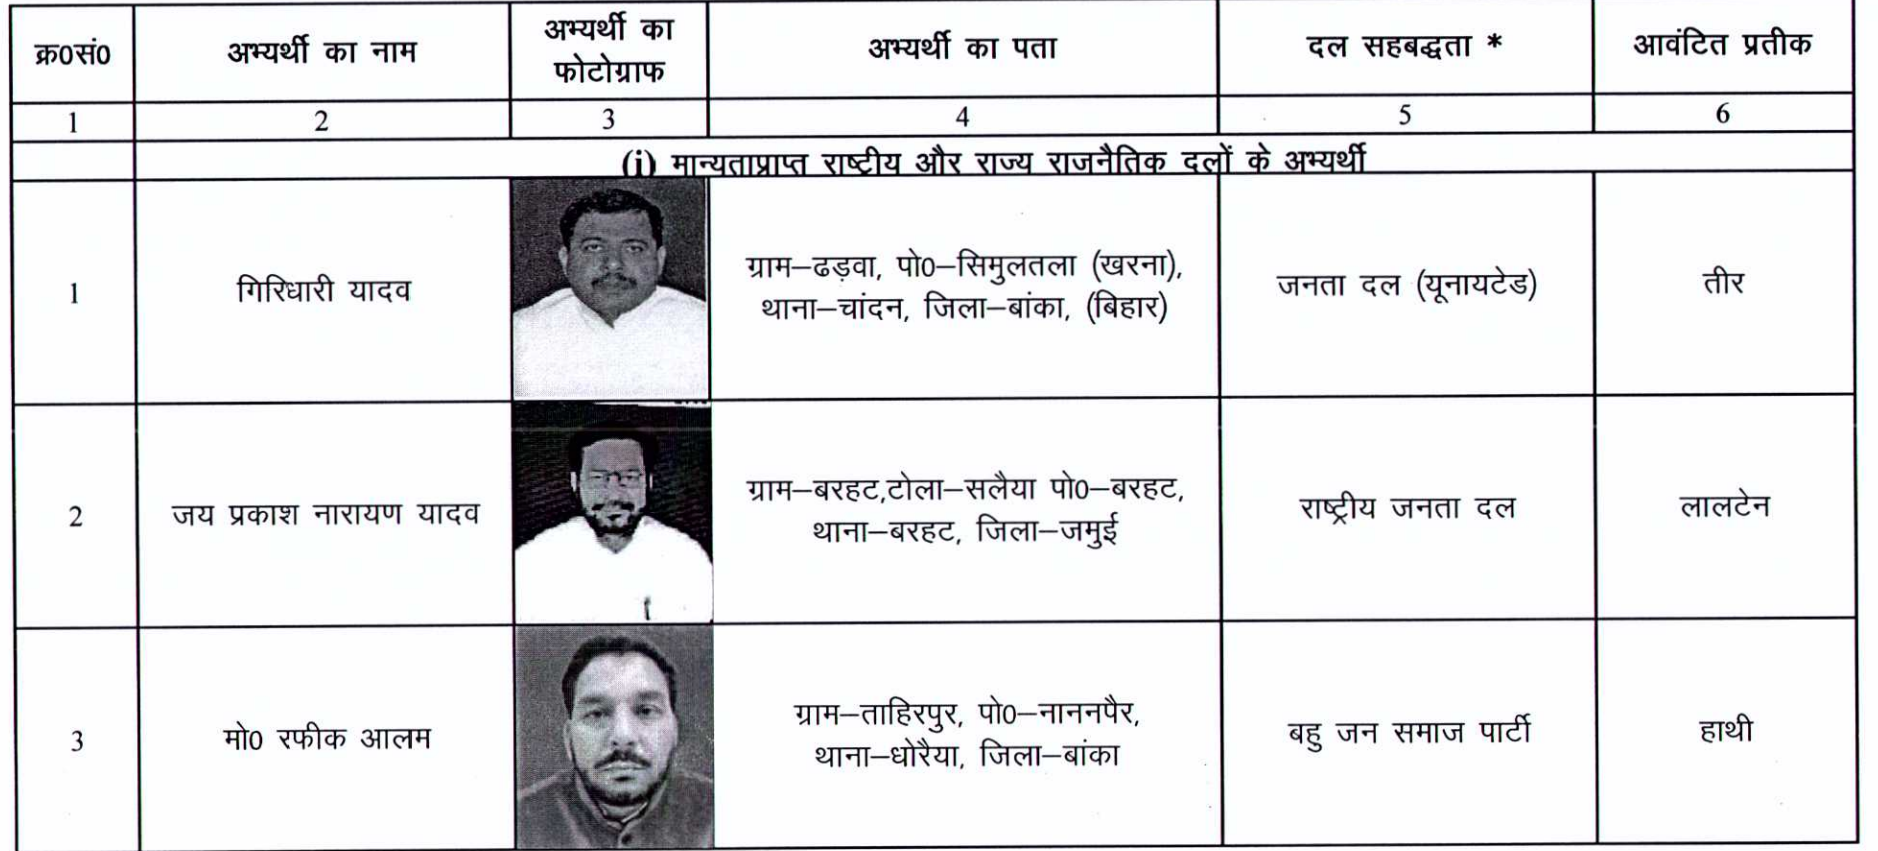 क्र0सं0 अभ्यर्थी का नाम अभ्यर्थी का फोटोग्राफ अभ्यर्थी का पता दल सहबद्धता * आवंटित प्रतीक
1 2 3 4 5 6
(i) मान्यताप्राप्त राष्टीय और राज्य राजनैतिक दलों के अभ्यर्थी
1 गिरिधारी यादव ग्राम–ढड़वा, पो0–सिमुलतला (खरना), थाना–चांदन, जिला–बांका, (बिहार) जनता दल (यूनायटेड) तीर
2 जय प्रकाश नारायण यादव ग्राम–बरहट,टोला–सलैया पो0–बरहट, थाना–बरहट, जिला–जमुई राष्ट्रीय जनता दल लालटेन
3 मो0 रफीक आलम ग्राम–ताहिरपुर, पो0–नाननपैर, थाना–धोरैया, जिला–बांका बहु जन समाज पार्टी हाथी